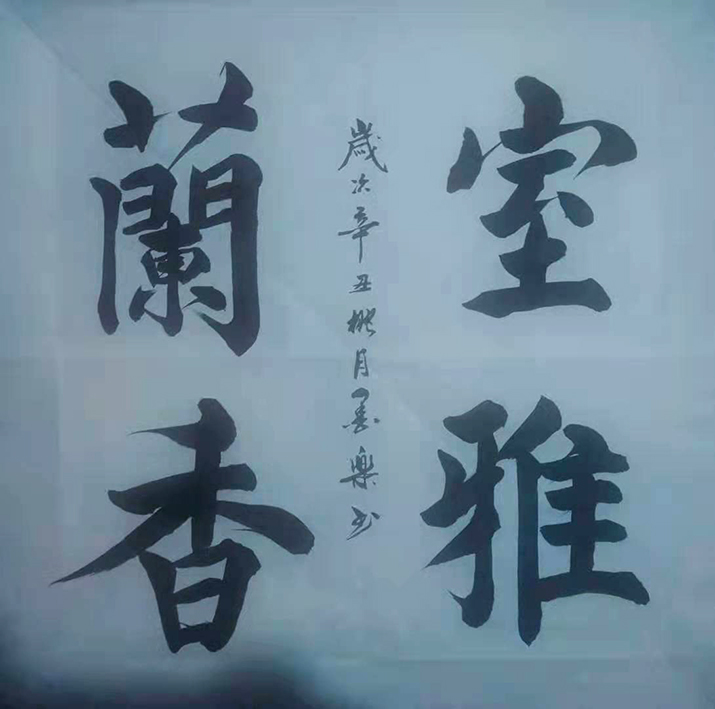 室雅
蘭香
歲次辛丑桃月墨樂书